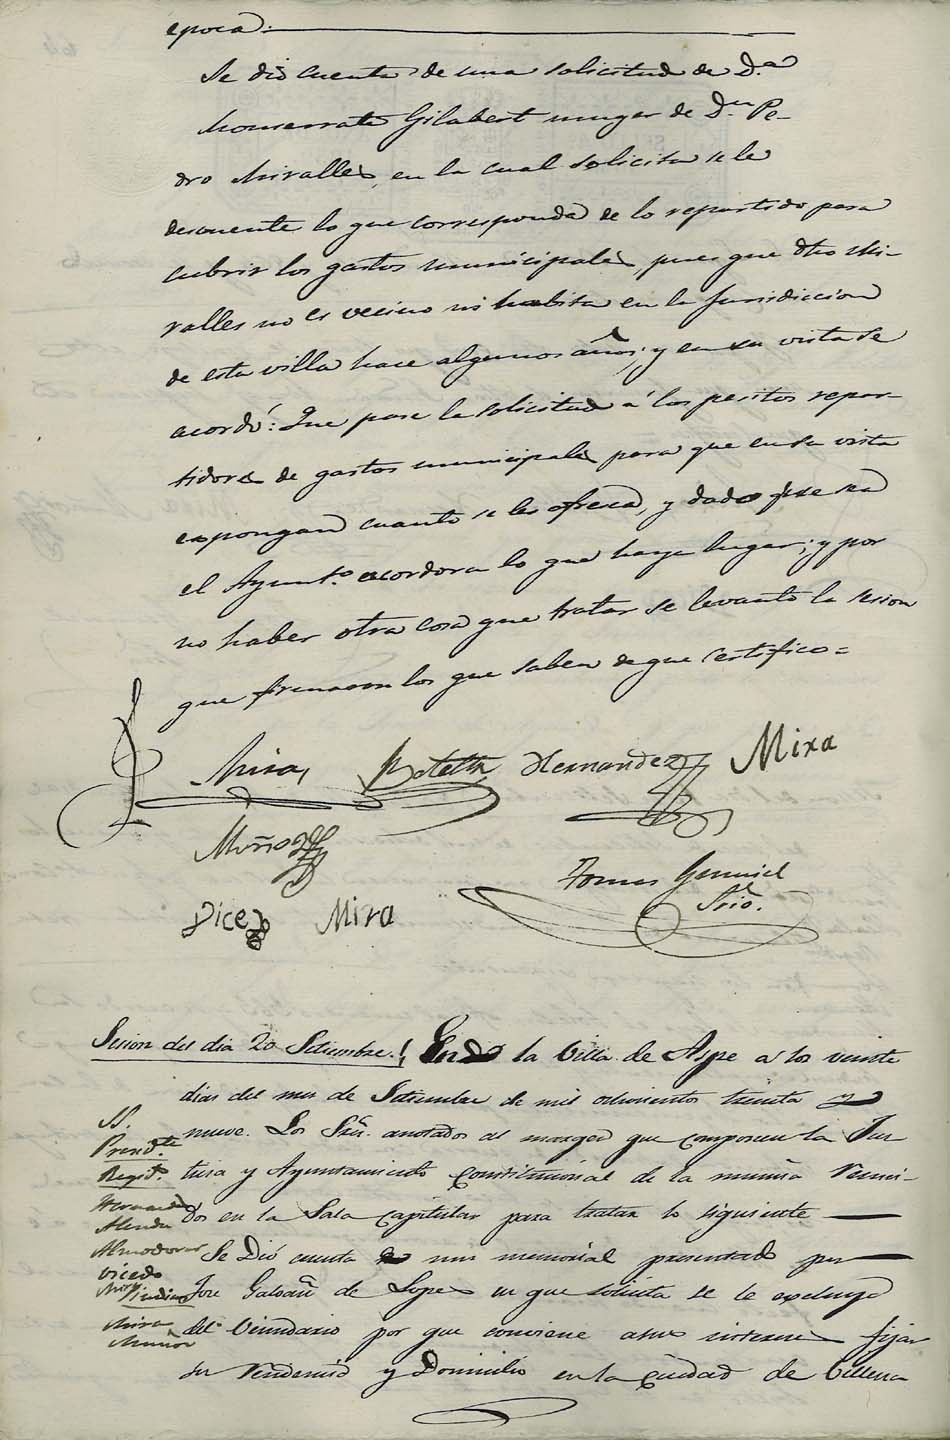 epoca.
Se dió cuenta de una solicitud de D.ª
Monserrate Gilabert muger de D.n Pe-
dro Miralles, en la cual solicita se le
descuente lo que corresponda de lo repartido para
cubrir los gastos municipales, pues que dho Mi-
ralles no es vecino ni habita en la Jurisdiccion
de esta villa hace algunos años; y en su vista se
acordó: Que pase la solicitud á los peritos repar-
tidores de gastos municipales para que en su vista
espongan cuanto se les ofresca, y dado que sea
el Ayunt.º acordara lo que haya lugar; y por
no haber otra cosa que tratar se levantó la sesion
que firmaron los que saben de que certifico=
Mira, Botella Hernandez Mira
Muñoz
Tomas
Srio.
Dicez Mira
Sesion del dia 20 Setiembre. En la Villa de Aspe a los veinte
dias del mes de Setiembre de mil ochocientos treinta y
nueve. Los Sres. anotados al margen que componen la Jus
ticia y Ayuntamiento constitucional de la misma reuni-
dos en la Sala capitular para tratar lo siguiente
SS.
Presid.te
Regid.s
Hernandez
Almodovar
Vicedo
Sindico
Mira
Muñoz
Se Dió cuenta de un memorial presentado por
Jose Galvañ de Lopez en que solicita se le excluya
del Vecindario por que conviene a sus intereses fijar
su Vendimia y Domicilio en la ciudad de Villena